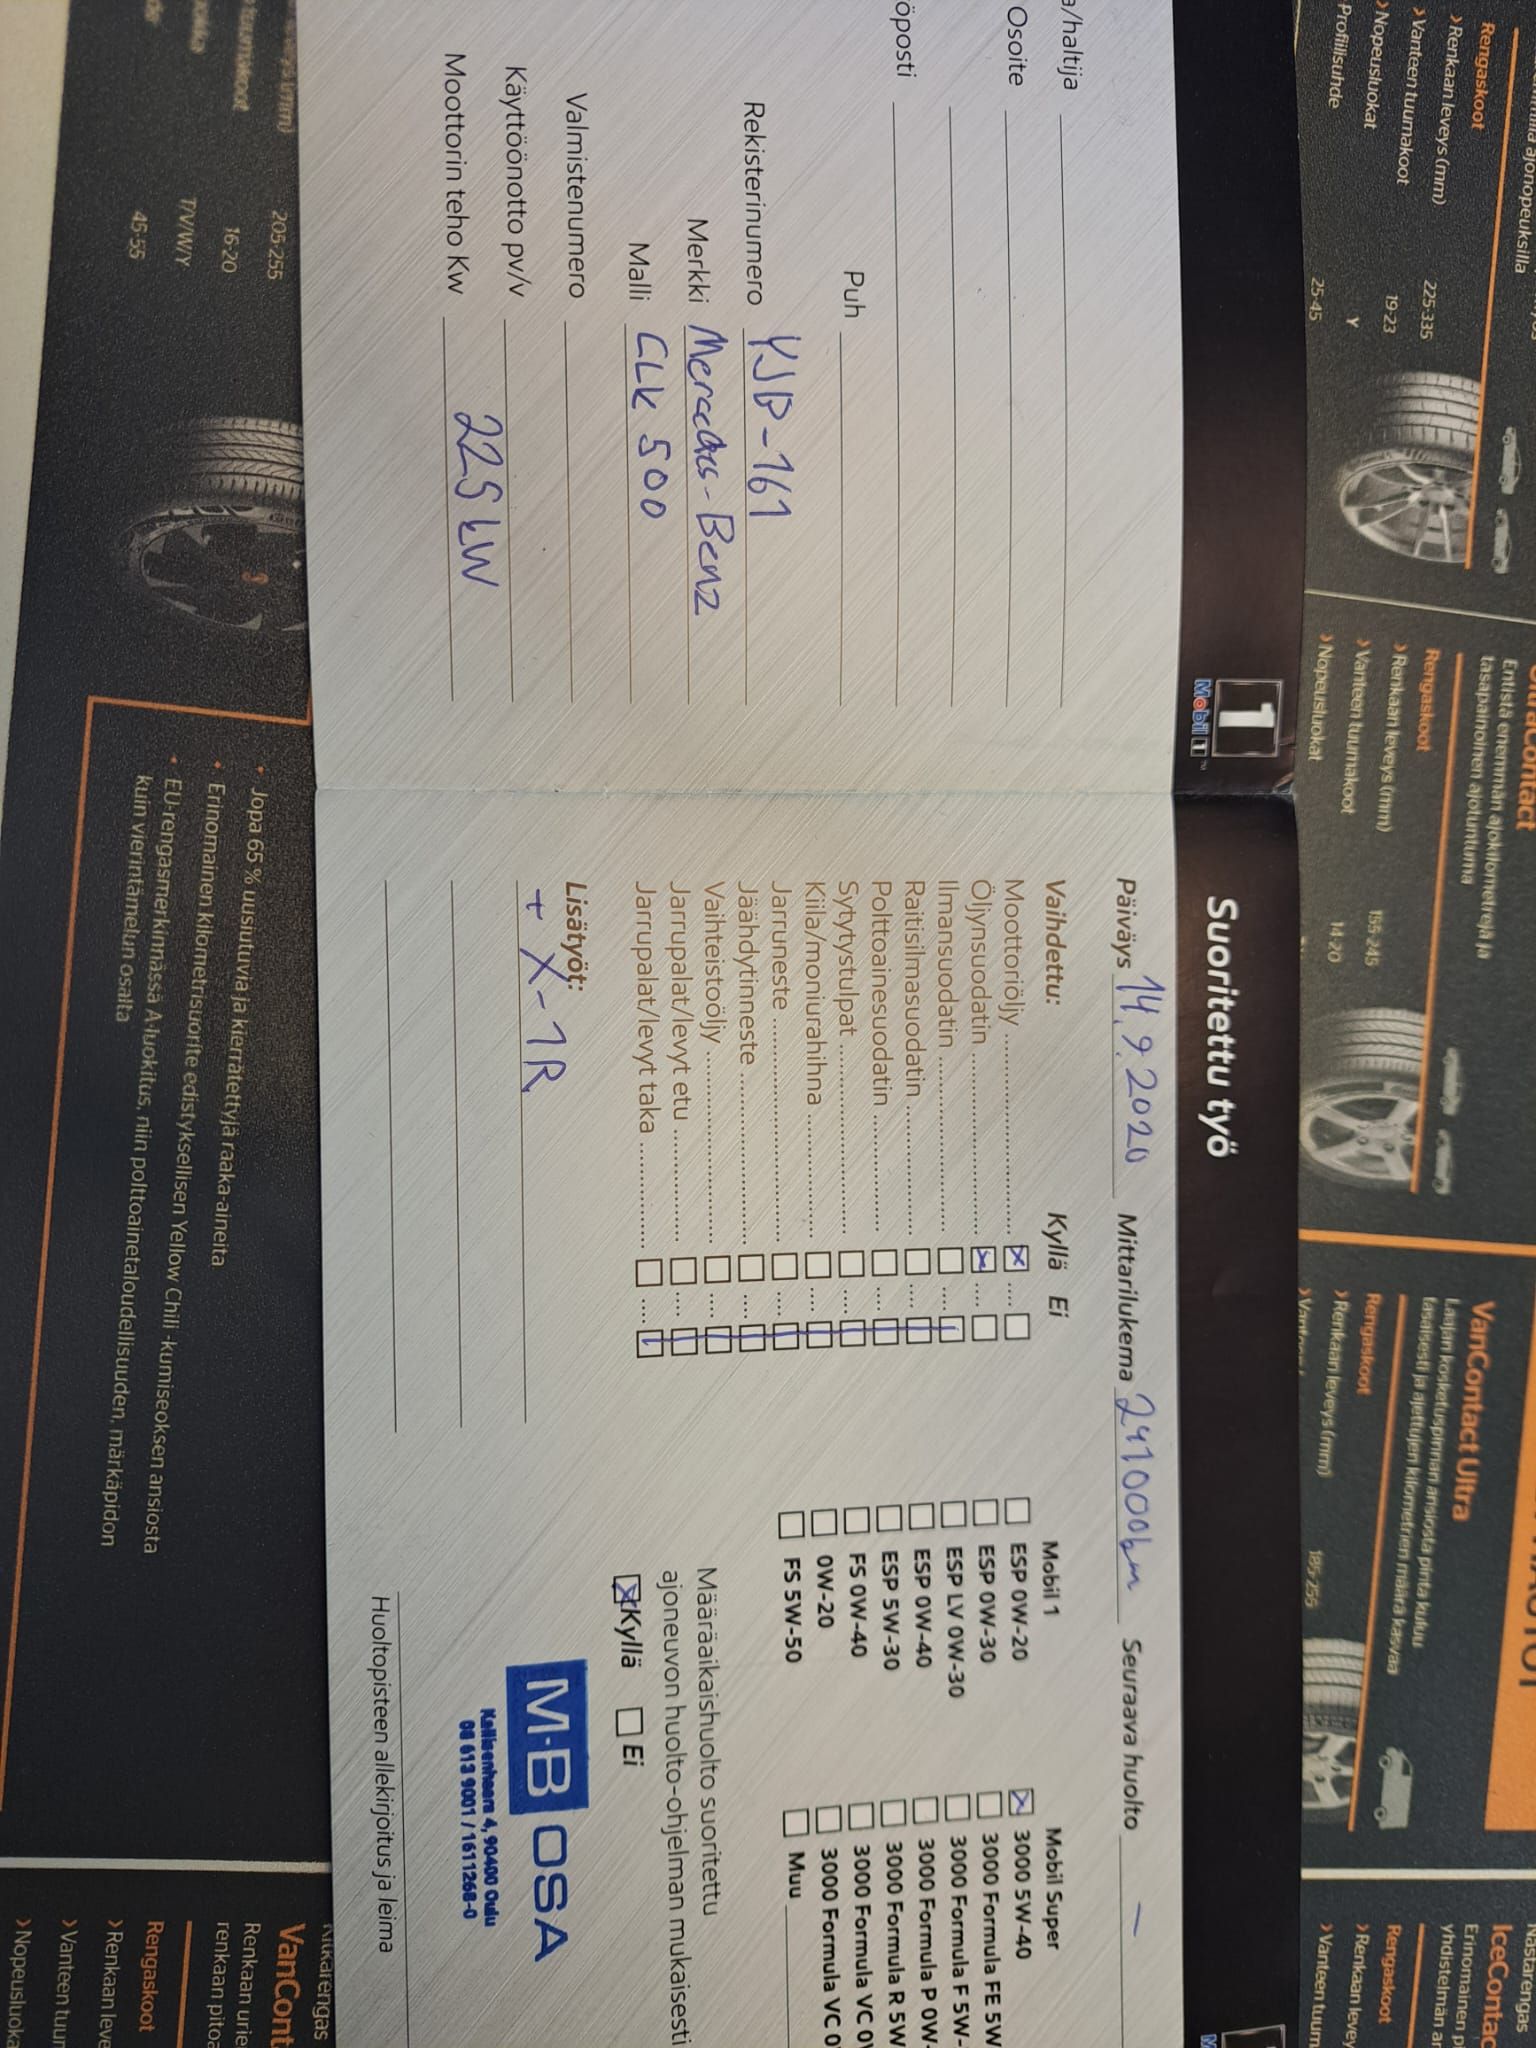 a/haltija
Osoite
öposti
Puh
Rekisterinumero YJB-161
Merkki Mercedes-Benz
Malli CLK 500
Valmistenumero
Käyttöönotto pv/v
Moottorin teho Kw 225 kW
1
Mobil 1™
Suoritettu työ
Päiväys 14.9.2020 Mittarilukema 241000km Seuraava huolto —
Vaihdettu: Kyllä Ei
Moottoriöljy
Öljynsuodatin
Ilmansuodatin
Raitisilmasuodatin
Polttoainesuodatin
Sytytystulpat
Kiila/moniurahihna
Jarruneste
Jäähdytinneste
Vaihteistoöljy
Jarrupalat/levyt etu
Jarrupalat/levyt taka
Lisätyöt:
+ X-1R
Mobil 1
ESP 0W-20
ESP 0W-30
ESP LV 0W-30
ESP 0W-40
ESP 5W-30
FS 0W-40
0W-20
FS 5W-50
Mobil Super
3000 5W-40
3000 Formula FE 5W
3000 Formula F 5W-
3000 Formula P 0W-
3000 Formula R 5W
3000 Formula VC 0W
3000 Formula VC 0
Muu
Määräaikaishuolto suoritettu
ajoneuvon huolto-ohjelman mukaisesti
Kyllä Ei
M·B OSA
Kallisenhaara 4, 90400 Oulu
08 613 9001 / 1611268-0
Huoltopisteen allekirjoitus ja leima
ajonopeuksilla
Rengaskoot
› Renkaan leveys (mm) 225-335
› Vanteen tuumakoot 19-23
› Nopeusluokat Y
› Profiilisuhde 25-45
UltraContact
Entistä enemmän ajokilometrejä ja
tasapainoinen ajotuntuma
Rengaskoot
› Renkaan leveys (mm) 155-245
› Vanteen tuumakoot 14-20
› Nopeusluokat
VanContact Ultra
Laajan kosketuspinnan ansiosta pinta kuluu
tasaisesti ja ajettujen kilometrien määrä kasvaa
Rengaskoot
› Renkaan leveys (mm) 185-235
IceContac
Rengaskoot
› Renkaan leve
› Vanteen tuum
205-255
16-20
T/V/W/Y
45-55
• Jopa 65 % uusiutuvia ja kierrätettyjä raaka-aineita
• Erinomainen kilometrisuorite edistyksellisen Yellow Chili -kumiseoksen ansiosta
• EU-rengasmerkinnässä A-luokitus, niin polttoainetaloudellisuuden, märkäpidon
kuin vierintämelun osalta
VanCont
Renkaan urie
renkaan pitoa
Rengaskoot
› Renkaan leve
› Vanteen tuum
› Nopeusluoka